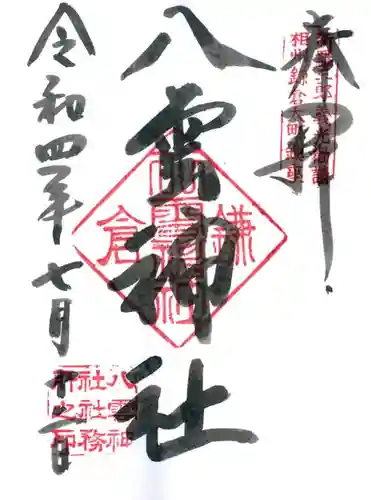 奉拝
相州鎌倉大町鎮座
八雲神社
鎌倉
八雲神社
令和四年七月十二日
八雲神社社務所之印